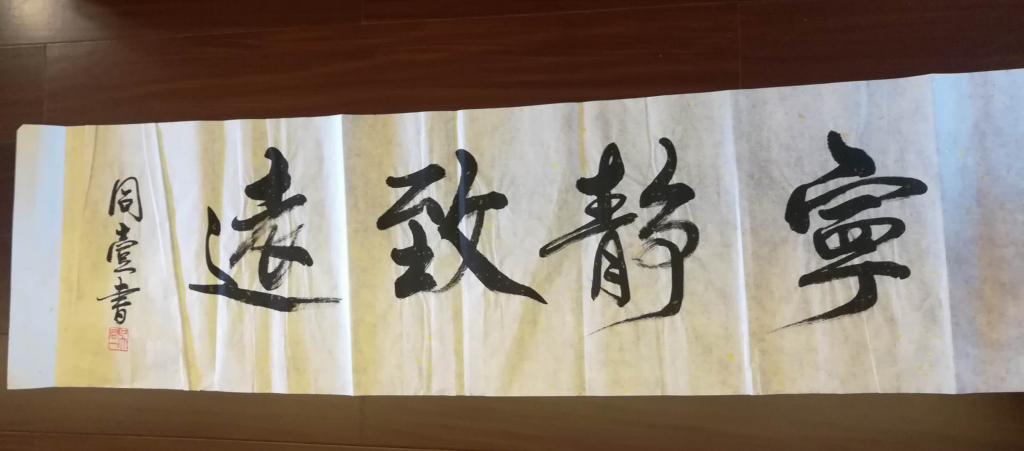 寧靜致遠
同壹書